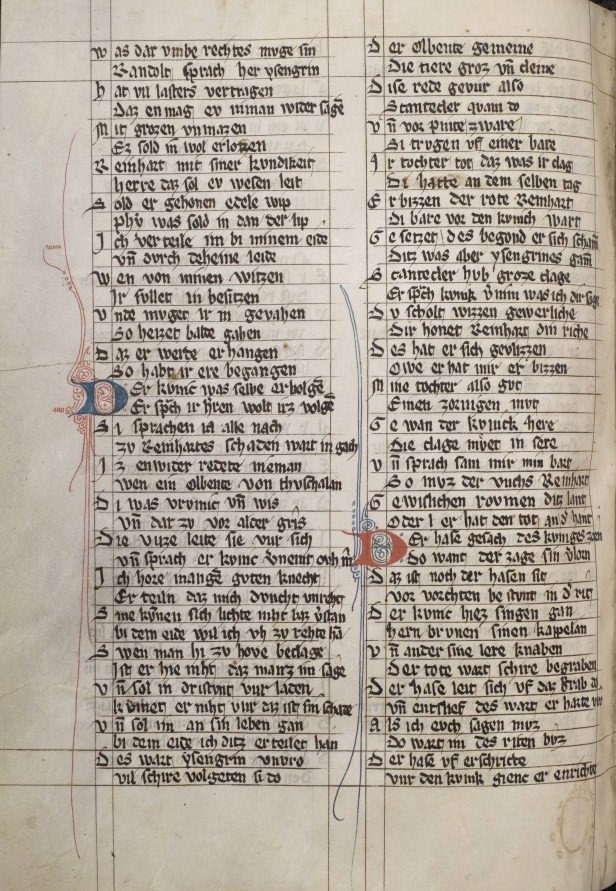 W as dar vmbe rechtes mvge sin
Randolt sprach her ysengrin
h at vil lasters vertragen
Daz en mag ev niman wider sagē
M it grozen vnmazen
Ez sold in wol erlozzen
R einhart mit siner kvndikeit
herre daz sol ev wesen leit
S old er gehonen edele wip
phṽ was sold in dan der lip
J ch verteile im bi minem eide
vñ dvrch deheine leide
W en von minen witzen
Jr svllet in besitzen
V nde mvget ir in gevahen
So heizet balde gahen
D az er werte er hangen
So habt ir ere begangen
D Er kvnic was selbe erbolgē
Er spͨh ir hren wolt irz volgē
S i sprachen ia alle nach
zv Reinhartes schaden wart in gach
J z enwider redete nieman
wen ein Olbente von thvschalan
D i was vrvmic vñ wis
vñ dar zv vor alder gris
D ie vuze leite sie vur sich
vñ sprach er kvnic vnemt ovh mi
J ch hore mangē gvten knecht
Er teiln daz mich dvncht vnrecht
S ine kvnen sich lichte niht baz vstan
bi dem eide wil ich vh zv rehte hā
S wen man hi zv hove beclage
Jst er hie niht daz manz im sage
V ñ sol in dristvnt vur laden
kvmet er niht vur daz ist sin schade
V ñ sol im an sin leben gan
bi dem eide ich ditz erteilet han
D es wart ysengrin vnvro
vil schire volgeten si do
D er Olbente gemeine
Die tiere groz vñ cleine
D ise rede gevur also
Scantecler quam do
V ñ vor pinte zware
Si trvgen vf einer bare
J r tochter tot daz was ir clag
Di hatte an dem selben tag
E rbizzen der rote Reinhart
Di bare vor den kvnich wart
G e setzet des begond er sich schamē
Ditz was aber ysengrines gamē
S cantecler hvb groze clage
Er spͨh kvnik vnim was ich dir sage
D v scholt wizzen gewerliche
Dir honet Reinhart din riche
D es hat er sich gevlizzen
Owe er hat mir er bizzen
M ine tochter also gvt
Einen zornigen mvt
G e wan der kvnick here
Die clage mvet in sere
V ñ sprach sam mir min bart
So mvz der vuchs Reinhart
G ewislichen rovmen ditz lant
Oder er hat den tot an d' hant
D Er hase gesach des kvniges zorn
Do want der zage sin v'lorn
D az ist noch der hasen sit
vor vorchten bestvnt in d' rit
D er kvnic hiez singen gan
hern brvnen sinen kappelan
V ñ ander sine lere knaben
Der tote wart schire begraben
D er hase leit sich vf daz grab do
vñ entslief des wart er harte vro
A ls ich evch sagen mvz
Do wart im des riten bvz
D er hase vf erschricte
vur den kvnik gienc er enrichte